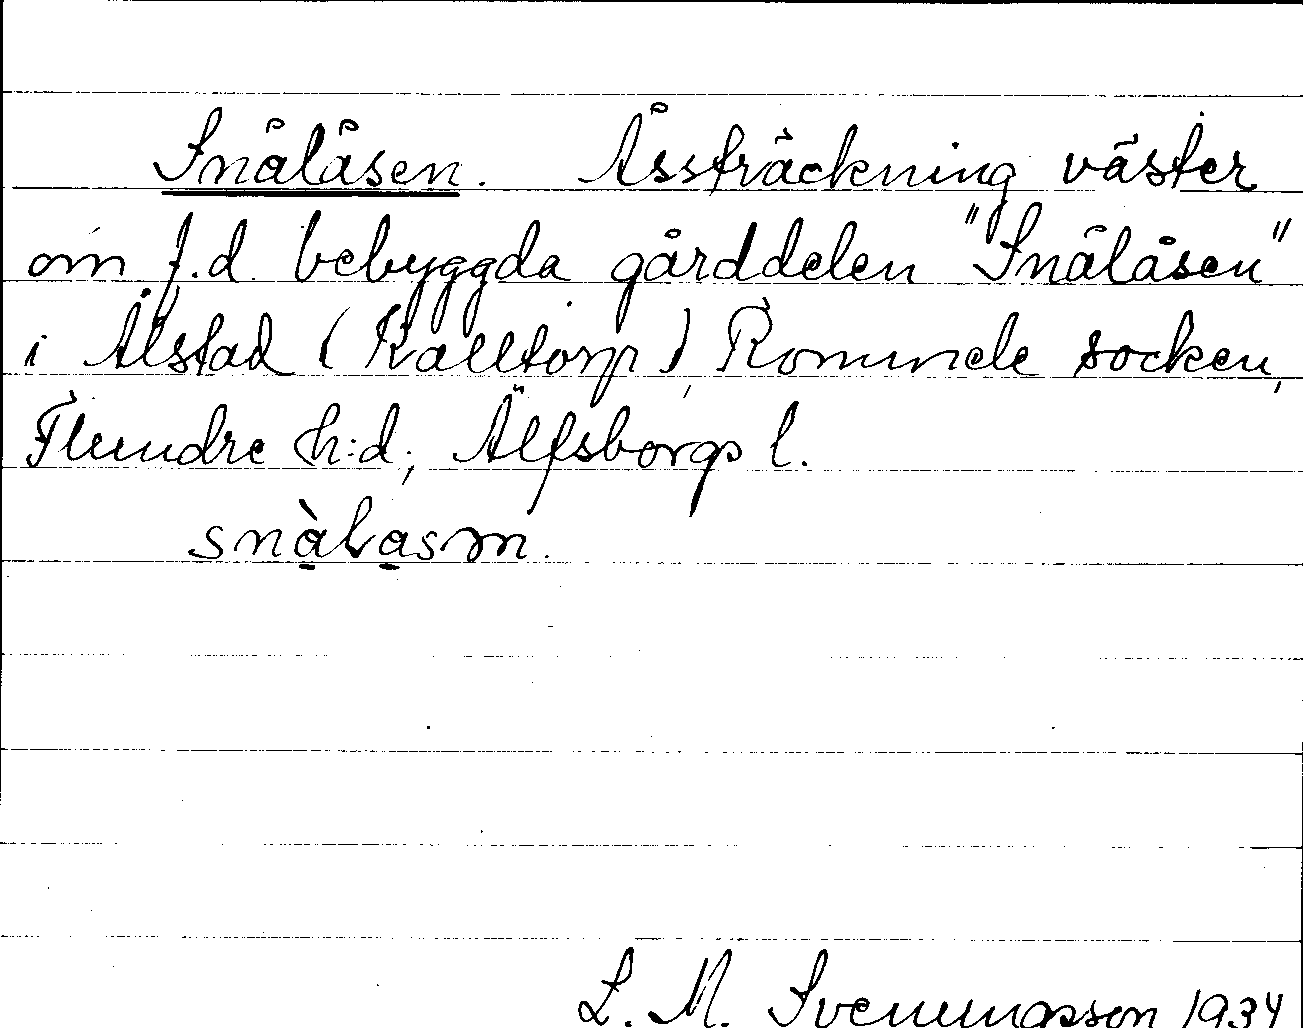 Snålåsen. Åssträckning väster
om f.d. bebyggda gårddelen "Snålåsen"
i Ålstad (Kalltorp) Rommele socken,
Flundre h:d, Älfsborgs l.
snàlasm.
L. M. Svenungsson 1934